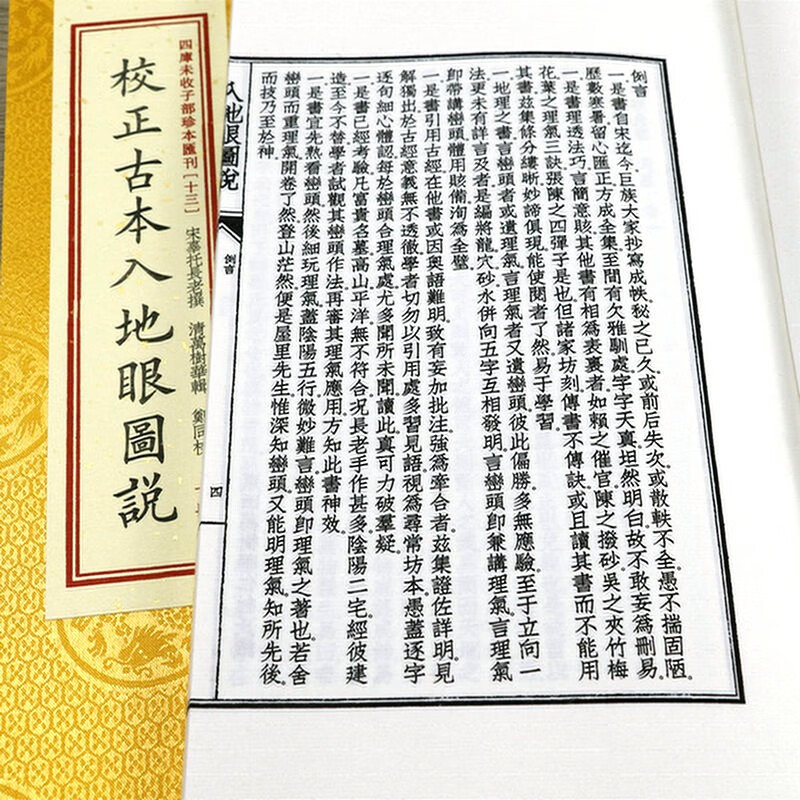 四庫未收子部珍本匯刊〔十三〕
校正古本入地眼圖說
宋辜托長老撰 清萬樹華輯
例言
一是書自宋迄今巨族大家抄寫成帙秘之已久或前后失次或散軼不全愚不揣固陋
歷數寒暑留心匯正方成全集至間有欠雅馴處字字天真坦然明白故不敢妄為刪易
一是書理透法巧言簡意賅其他書有相為表裏者如賴之催官陳之撥砂吳之夾竹梅
花葉之理氣三訣張陳之四彈子是也但諸家坊刻傳書不傳訣或且讀其書而不能用
其書茲集條分縷晰妙諦俱現能使閱者了然易于學習
一地理之書言巒頭者或遺理氣言理氣者又遺巒頭彼此偏勝多無應驗至于立向一
法更未有詳言及者是編將龍穴砂水併向五字互相發明言巒頭即兼講理氣言理氣
即帶講巒頭體用賅備洵為全璧
一是書引用古經在他書或因奧語難明致有妄加批注強為牽合者茲集證佐詳明見
解獨出於古經意義無不透徹學者切勿以引用處多習見語視為尋常坊本愚蓋逐字
逐句細心體認每於巒頭合理氣處尤多聞所未聞讀此真可力破羣疑
一是書已經考驗凡富貴名墓高山平洋無不符合況長老手作甚多陰陽二宅經彼建
造至今不替學者試觀其巒頭作法再審其理氣應用方知此書神效
一是書宜先熟看巒頭然後細玩理氣蓋陰陽五行微妙難言巒頭即理氣之著也若舍
巒頭而重理氣開卷了然登山茫然便是屋里先生惟深知巒頭又能明理氣知所先後
而技乃至於神
入地眼圖說
例言
四